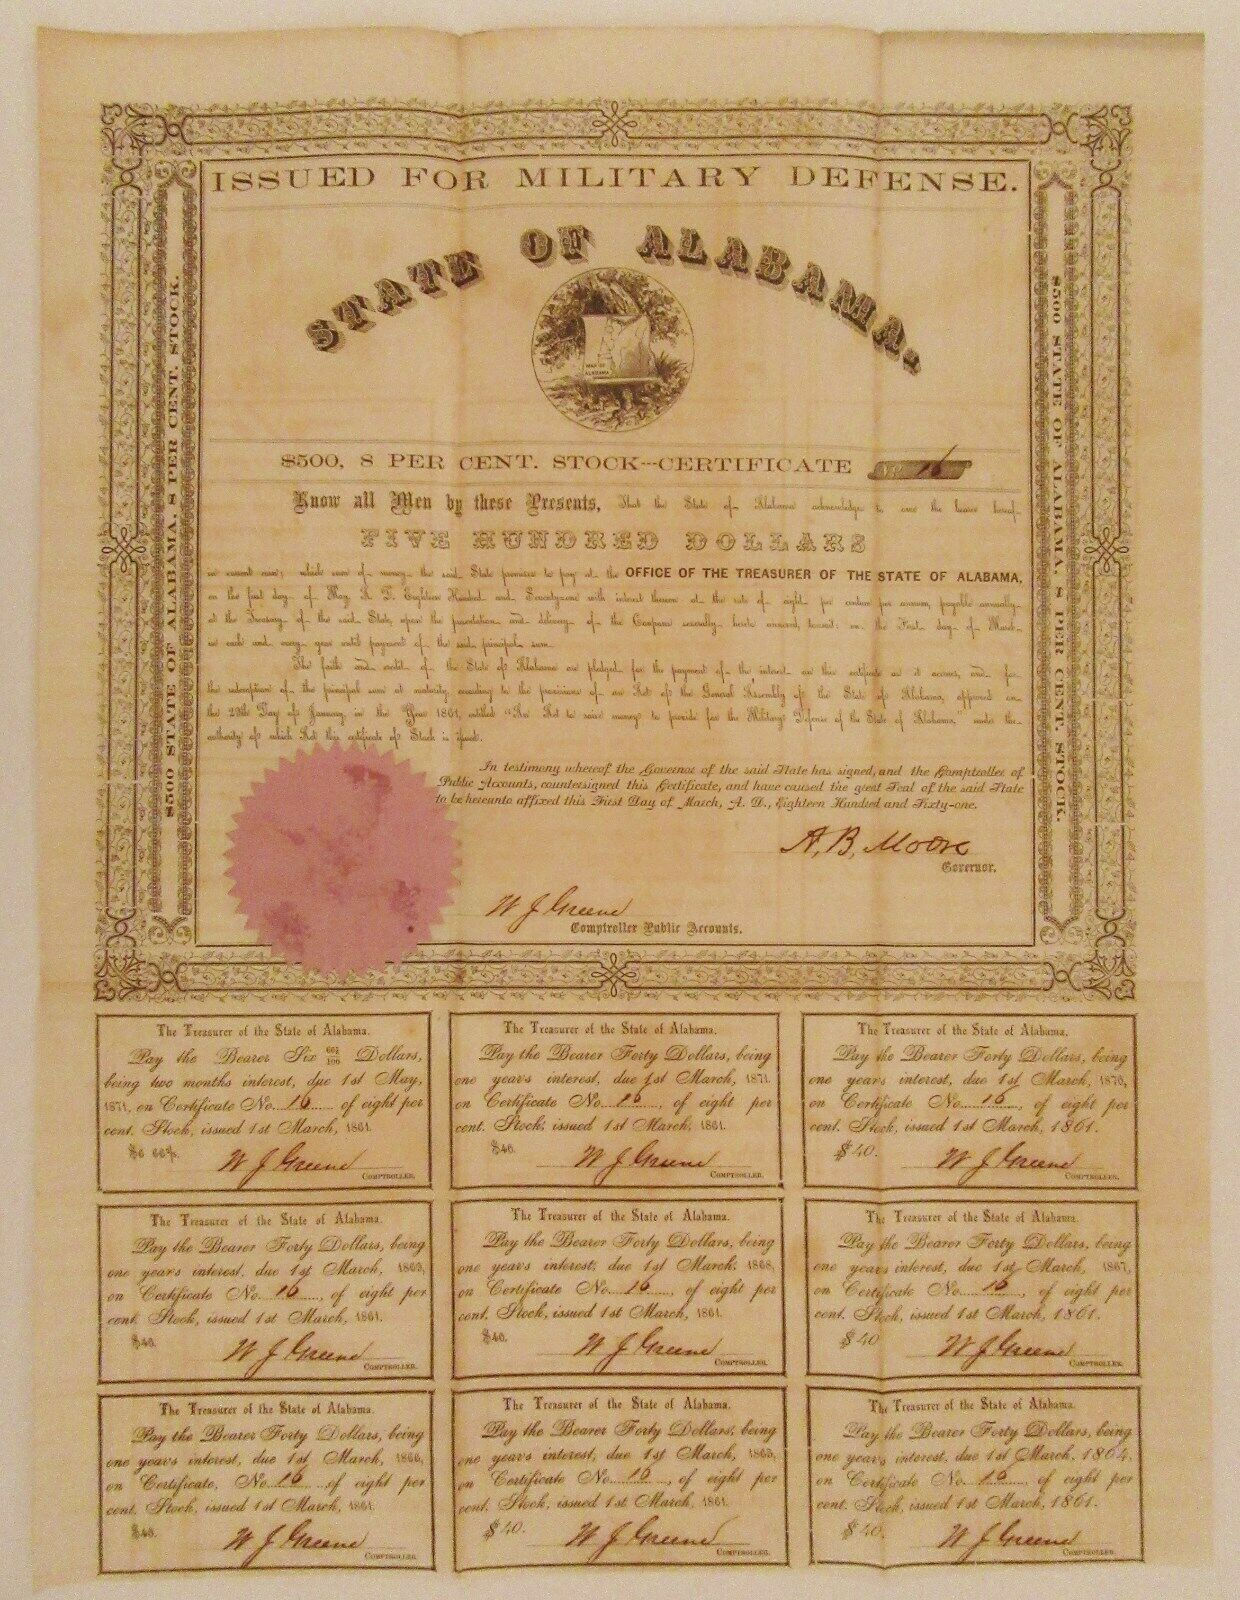 ISSUED FOR MILITARY DEFENSE.
STATE OF ALABAMA.
MAP OF
ALABAMA
$500, 8 PER CENT. STOCK---CERTIFICATE No 16
Know all Men by these Presents, That the State of Alabama acknowledges to owe the bearer hereof
FIVE HUNDRED DOLLARS
which sum of money the said State promises to pay at the OFFICE OF THE TREASURER OF THE STATE OF ALABAMA,
on the first day of May, A. D. Eighteen Hundred and Seventy-one with interest thereon at the rate of eight per centum per annum, payable annually
at the Treasury of the said State, upon the presentation and delivery of the Coupons severally hereto annexed, to-wit: on the First day of March
in each and every year until payment of the said principal sum.
The faith and credit of the State of Alabama are pledged for the payment of the interest on this certificate as it accrues, and for
the redemption of the principal sum at maturity, according to the provisions of an Act of the General Assembly of the State of Alabama, approved on
the 29th Day of January, in the Year 1861, entitled "An Act to raise money to provide for the Military Defense of the State of Alabama," under the
authority of which Act this certificate of Stock is issued.
In testimony whereof the Governor of the said State has signed, and the Comptroller of
Public Accounts, countersigned this Certificate, and have caused the great Seal of the said State
to be hereunto affixed this First Day of March, A. D., Eighteen Hundred and Sixty-one.
A. B. Moore
Governor.
W J Greene
Comptroller Public Accounts.
$500 STATE OF ALABAMA, 8 PER CENT. STOCK.
$500 STATE OF ALABAMA, 8 PER CENT. STOCK.
The Treasurer of the State of Alabama.
Pay the Bearer Six 66⅔/100 Dollars,
being two months interest, due 1st May,
1871, on Certificate No. 16 of eight per
cent. Stock, issued 1st March, 1861.
$6 66⅔.
W J Greene
COMPTROLLER.
The Treasurer of the State of Alabama.
Pay the Bearer Forty Dollars, being
one year's interest, due 1st March, 1871.
on Certificate No. 16, of eight per
cent. Stock, issued 1st March, 1861.
$40.
W J Greene
COMPTROLLER.
The Treasurer of the State of Alabama.
Pay the Bearer Forty Dollars, being
one year's interest, due 1st March, 1870,
on Certificate No. 16, of eight per
cent. Stock, issued 1st March, 1861.
$40.
W J Greene
COMPTROLLER.
The Treasurer of the State of Alabama.
Pay the Bearer Forty Dollars, being
one year's interest, due 1st March, 1869,
on Certificate No. 16, of eight per
cent. Stock, issued 1st March, 1861.
$40.
W J Greene
COMPTROLLER.
The Treasurer of the State of Alabama.
Pay the Bearer Forty Dollars, being
one year's interest, due 1st March, 1868,
on Certificate No. 16, of eight per
cent. Stock, issued 1st March, 1861.
$40.
W J Greene
COMPTROLLER.
The Treasurer of the State of Alabama.
Pay the Bearer Forty Dollars, being
one year's interest, due 1st March, 1867,
on Certificate No. 16, of eight per
cent. Stock, issued 1st March, 1861.
$40
W J Greene
COMPTROLLER.
The Treasurer of the State of Alabama.
Pay the Bearer Forty Dollars, being
one year's interest, due 1st March, 1866,
on Certificate, No. 16 of eight per
cent. Stock, issued 1st March, 1861.
$40.
W J Greene
COMPTROLLER.
The Treasurer of the State of Alabama.
Pay the Bearer Forty Dollars, being
one year's interest, due 1st March, 1865,
on Certificate No. 16, of eight per
cent. Stock, issued 1st March, 1861.
$40.
W J Greene
COMPTROLLER.
The Treasurer of the State of Alabama.
Pay the Bearer Forty Dollars, being
one year's interest, due 1st March, 1864.
on Certificate No. 16 of eight per
cent. Stock, issued 1st March, 1861.
$40.
W J Greene
COMPTROLLER.